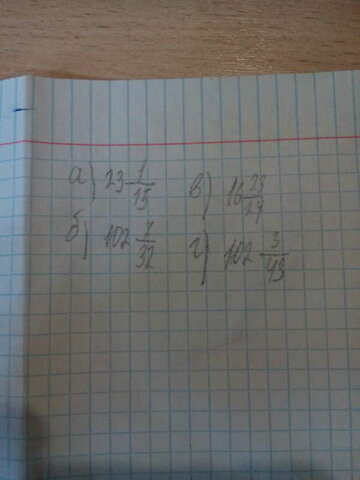 а) 23 1/15 в) 16 23/27
б) 102 7/32 г) 102 3/43